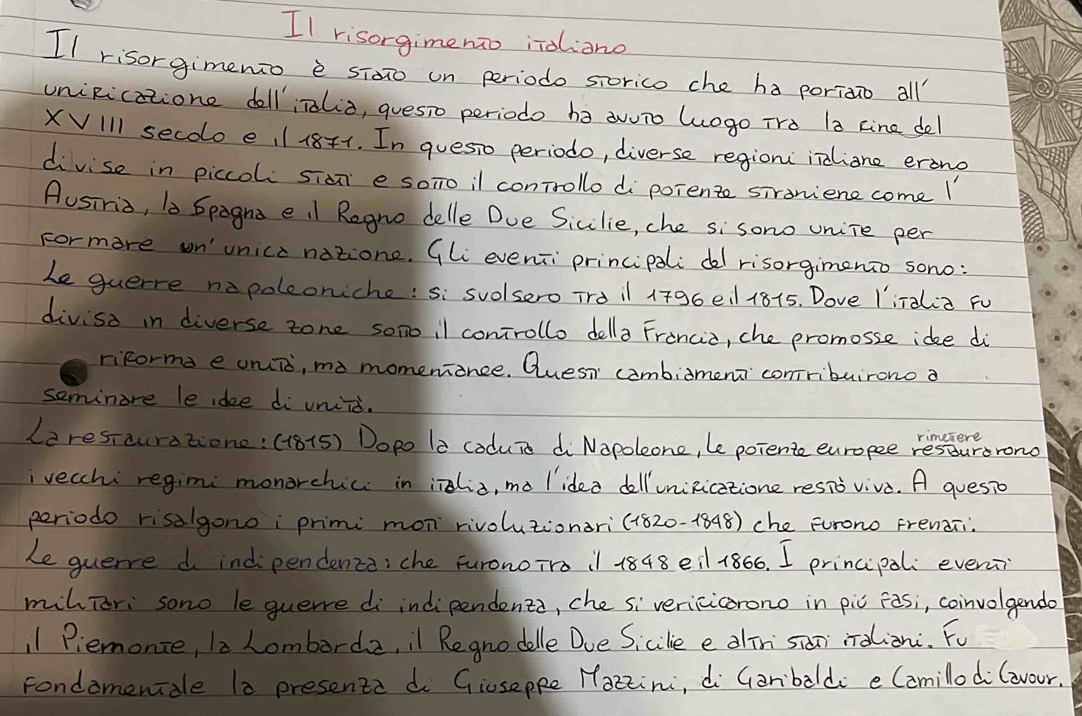 Il risorgimento italiano
Il risorgimento è stato un periodo storico che ha portato all'
unificazione dell'italia, questo periodo ha avuto luogo tra la fine del
XVIII secolo e il 1871. In questo periodo, diverse regioni italiane erano
divise in piccoli stati e sotto il controllo di potenze straniene come l'
Austria, la Spagna e il Regno delle Due Sicilie, che si sono unite per
formare un'unica nazione. Gli eventi principali del risorgimento sono:
Le guerre napoleoniche: si svolsero tra il 1796 e il 1815. Dove l'italia fu
divisa in diverse zone sotto il controllo della Francia, che promosse idee di
riforma e unità, ma momentanee. Questi cambiamenti contribuirono a
seminare le idee di unità.
La restaurazione: (1815) Dopo la caduta di Napoleone, le potenze europee restaurarono
rimettere
i vecchi regimi monarchici in italia, ma l'idea dell'unificazione restò viva. A questo
periodo risalgono i primi moti rivoluzionari (1820-1848) che furono frenati.
Le guerre di indipendenza: che furono tra il 1848 e il 1866. I principali eventi
militari sono le guerre di indipendenza, che si verificarono in più fasi, coinvolgendo
il Piemonte, la Lombardia, il Regno delle Due Sicilie e altri stati italiani. Fu
fondamentale la presenza di Giuseppe Mazzini, di Garibaldi e Camillo di Cavour.